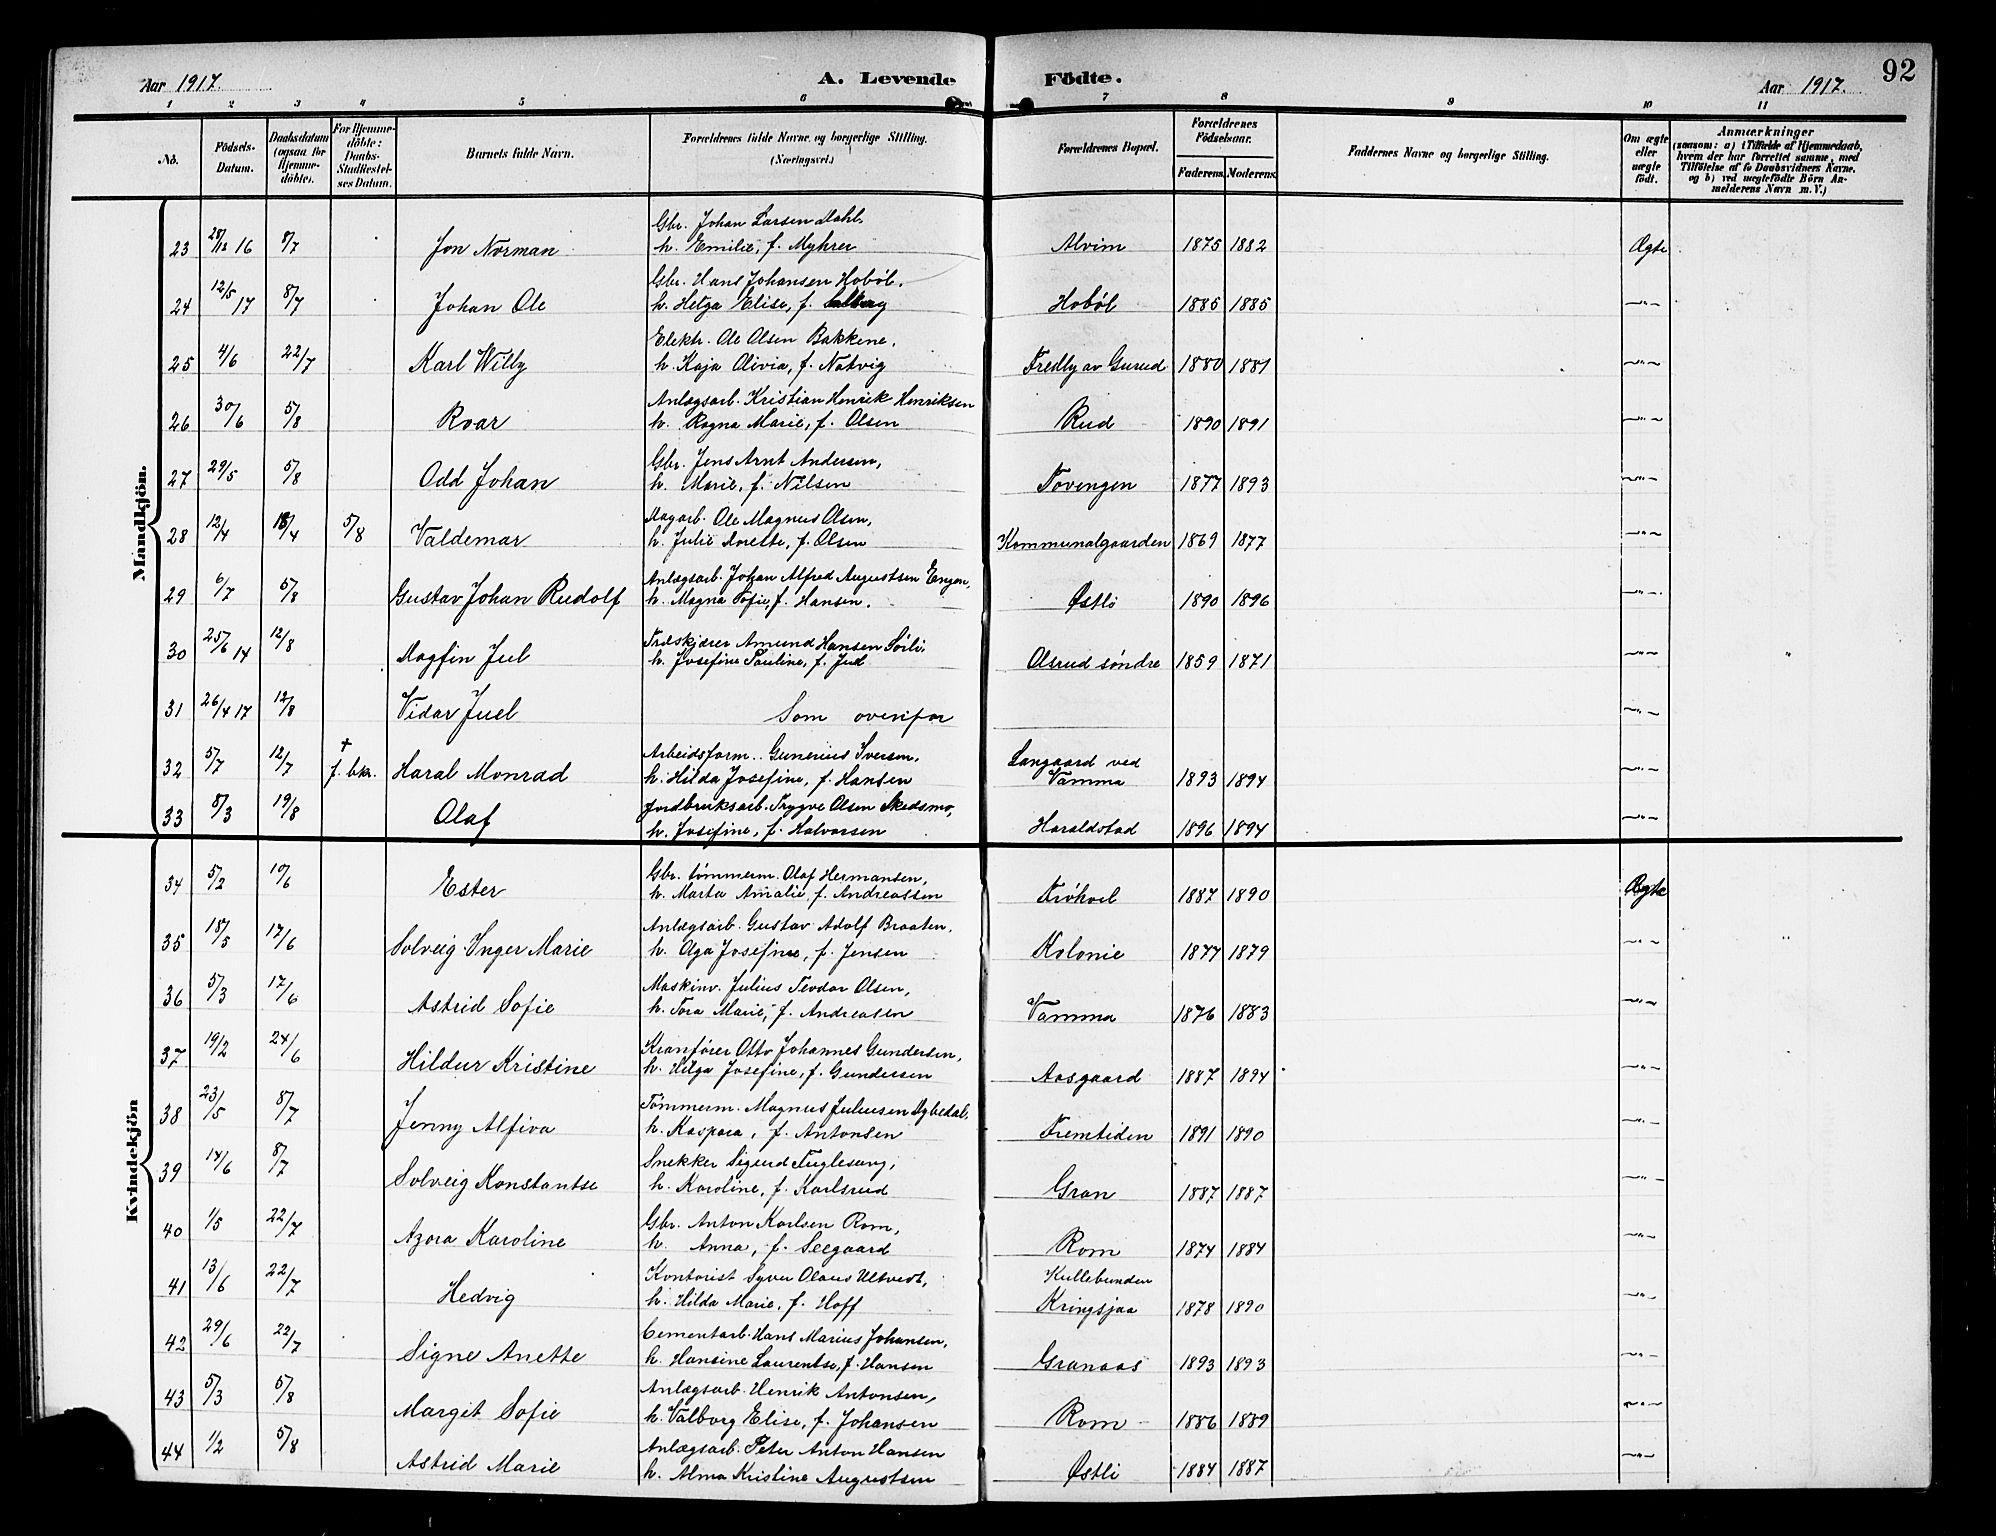 Aar 1917. A. Levende Födte. Aar 1917. 92
1 2 3 4 5 6 7 8 9 10 11
No. Födsels-Datum. Daabsdatum (ogsaa for Hjemme-döbte). For Hjemme-döbte: Daabs-Stadfæstel-ses Datum. Barnets fulde Navn. Forældrenes fulde Navne og borgerlige Stilling. (Næringsvei.) Forældrenes Bopæl. Forældrenes Födselsaar. Faderens. Moderens. Faddernes Navne og borgerlige Stilling. Om ægte eller uægte födt. Anmærkninger (saasom: a) i Tilfælde af Hjemmedaab, hvem der har forrettet samme, med Tilföielse af to Daabsvidners Navne. og b) ved uægtefödte Börn Anmelderens Navn m. V.)
Mandkjön.
Gbr. Johan Larsen Dahl,
23 28/12 16 8/7 Jon Norman h. Emilie, f. Myhrer Alvim 1875 1882 Ægte
Gbr. Hans Johansen Hobøl,
24 12/5 17 8/7 Johan Ole h. Helga Elise, f. Hobøl 1885 1885 -"-
Elektr. Ole Olsen Bakkene,
25 4/6 22/7 Karl Willy h. Kaja Olivia, f. Natvig Fredly av Gurud 1880 1881 -"-
Anlægsarb. Kristian Henrik Henriksen
26 30/6 5/8 Roar h. Ragna Marie, f. Olsen Rud 1890 1891 -"-
Gbr. Jens Arnt Andersen,
27 29/5 5/8 Odd Johan h. Marie, f. Nilsen Tovengen 1877 1893 -"-
Dagarb. Ole Magnus Olsen,
28 12/4 15/4 5/8 Valdemar h. Julie Dorette, f. Olsen Kommunalgaarden 1869 1877 -"-
Anlægsarb. Johan Alfred Augustsen Engen,
29 6/7 5/8 Gustav Johan Rudolf h. Magna Sofie, f. Hansen. Østli 1890 1896 -"-
Træskjærer Amund Hansen Sørli,
30 25/6 14 12/8 Dagfin Jul h. Josefine Pauline, f. Jul Olsrud søndre 1859 1871 -"-
31 26/4 17 12/8 Vidar Juel Som ovenfor -"-
Arbeidsform. Gunerius Iversen, Langaard ved
32 5/7 12/7 † f. bkr. Haral Monrad h. Hilda Josefine, f. Hansen Vamma 1893 1894 -"-
Jordbruksarb. Trygve Olsen Skedsmo,
33 8/3 19/8 Olaf h. Josefine, f. Halvorsen Haraldstad 1896 1894 -"-
Kvindekjön
Gbr. tømmerm. Olaf Hermansen,
34 5/2 10/6 Ester h. Marta Amalie, f. Andreassen Frøhoel 1887 1890 Ægte
Anlægsarb. Gustav Adolf Braaten,
35 18/5 17/6 Solveig Inger Marie h. Olga Josefine, f. Jensen Kolonie 1877 1879 -"-
Maskinv. Julius Teodor Olsen,
36 5/3 17/6 Astrid Sofie h. Tora Marie, f. Andreasen Vamma 1876 1883 -"-
Kranfører Otto Johannes Gundersen,
37 19/2 24/6 Hildur Kristine h. Helga Josefine, f. Gundersen Aasgaard 1887 1894 -"-
Tømmerm. Magnus Juliusen Dybedal,
38 23/5 8/7 Jenny Alfiva h. Kaspara, f. Antonsen Fremtiden 1891 1890 -"-
Snekker Sigurd Fuglesang,
39 14/6 8/7 Solveig Konstantse h. Karoline, f. Karlsrud Gran 1887 1887 -"-
Gbr. Anton Karlsen Rom,
40 1/5 22/7 Azora Karoline h. Anna, f. Seegaard Rom 1874 1884 -"-
Kontorist Syver Olaus Ultvedt, Kullebunden
41 13/6 22/7 Hedvig h. Hilda Marie, f. Hoff Kringsjaa 1878 1890 -"-
Cementarb. Hans Marius Johansen,
42 29/6 22/7 Signe Anette h. Hansine Laurentse, f. Hansen Granaas 1893 1893 -"-
Anlægsarb. Henrik Antonsen,
43 5/3 5/8 Margit Sofie h. Valborg Elise, f. Johansen Rom 1886 1889 -"-
Anlægsarb. Peter Anton Hansen
44 1/2 5/8 Astrid Marie h. Alma Kristine Augustsen Østli 1884 1887 -"-